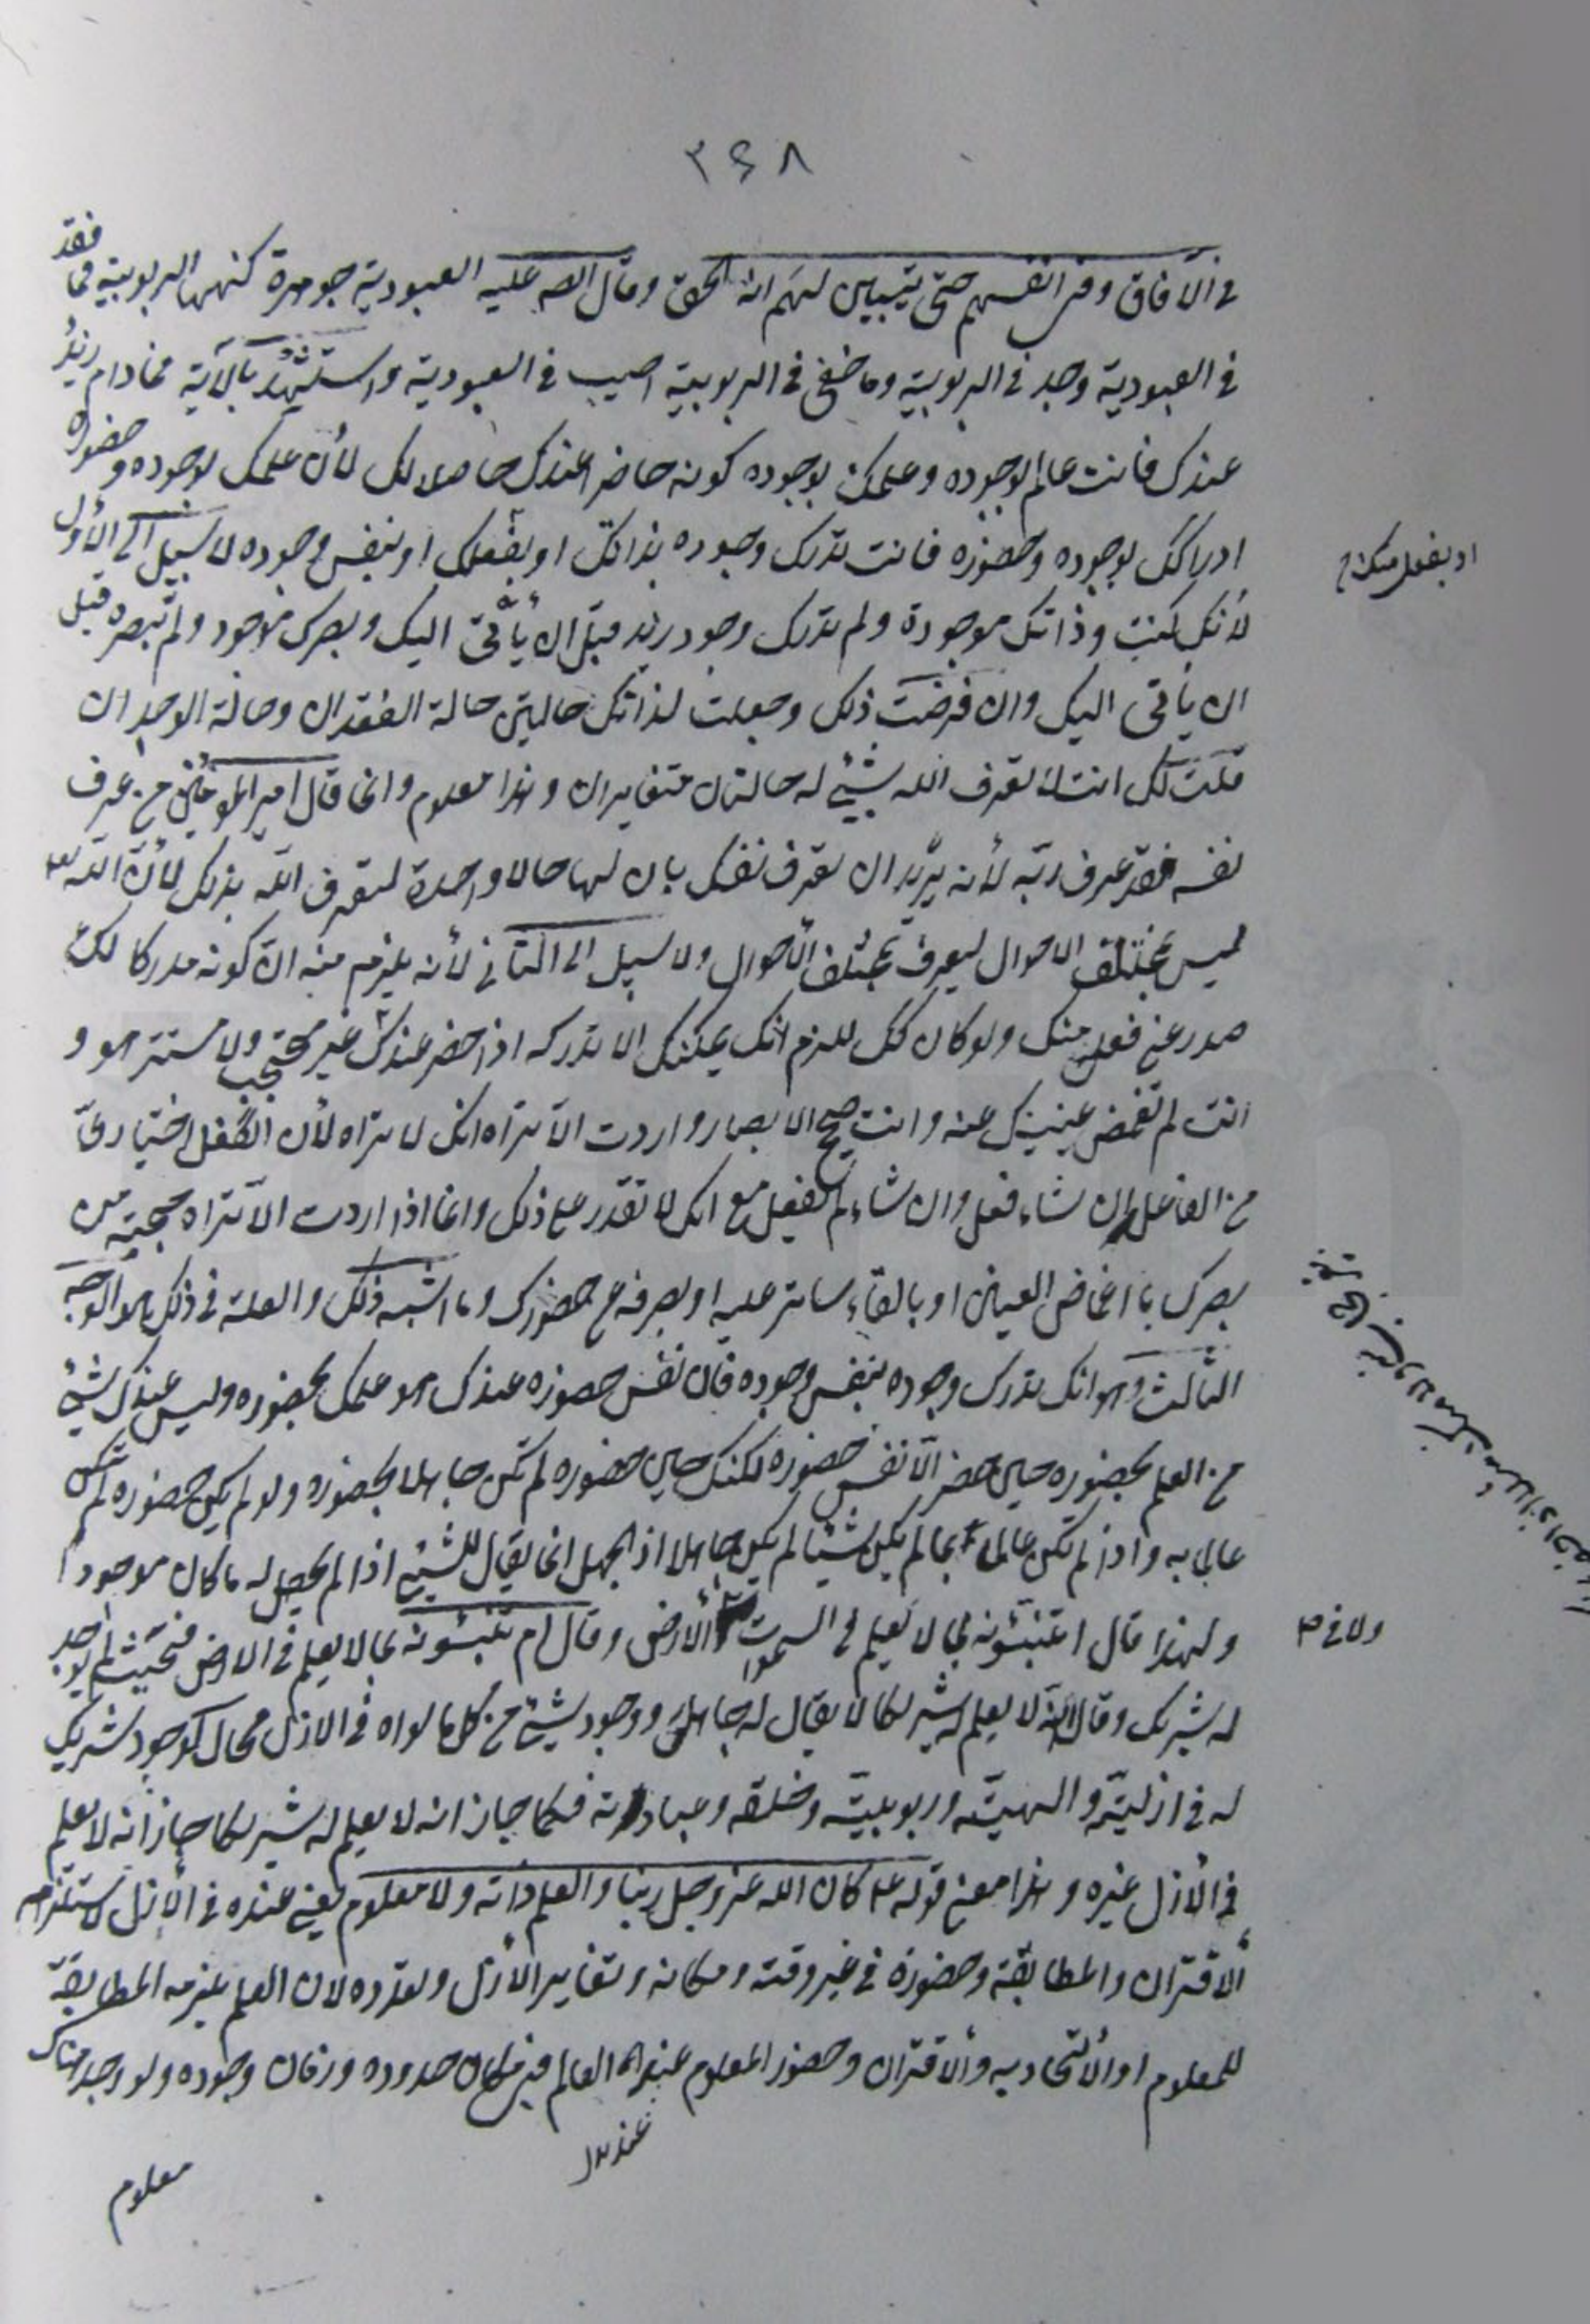 ٣۶٨
في الآفاق وفي انفسهم حتى يتبين لهم انه الحق وقال الصادق عليه العبودية جوهرة كنهها الربوبية فما فقد
في العبودية وجد في الربوبية وما خفي في الربوبية اصيب في العبودية واستشهد بالآية فما دام زيد
عندك فانت عالم بوجوده وعلمك بوجوده كونه حاضرا عندك حاصلا لك لأن علمك بوجوده وحضوره
ادراكك لوجوده وحضوره فانت تدرك وجوده بذاتك او بفعلك او بنفس وجوده لا سبيل الى الأول
او بفعل منك
لأنك كنت وذاتك موجودة ولم تدرك وجود زيد قبل ان يأتى اليك وبصرك موجود ولم تبصره قبل
ان يأتى اليك وان فرضت ذلك وجعلت لذاتك حالتين حالة الفقدان وحالة الوجدان
قلت لك انت لا تعرف الله بشيء له حالتان متغايران وهذا معلوم وانما قال امير المؤمنين من عرف
نفسه فقد عرف ربه لأنه يريد ان تعرف نفسك بان لها حالا واحدة لتعرف الله بذلك لأن الله تع
ليس بمختلف الاحوال ليعرف بمختلف الأحوال ولا سبيل الى الثاني لأنه يلزم منه ان كونه مدركا لك
صدر عن فعل منك ولو كان كك للزم انك يمكنك الا تدركه اذا حضر عندك غير محتجب ولا مستتر هو و
انت لم تغمض عينيك عنه وانت صحيح الابصار واردت الا تراه انك لا تراه لأن الفعل اختياري
من الفاعل ان شاء فعل وان شاء لم يفعل مع انك لا تقدر على ذلك وانما اذا اردت الا تراه حجبته من
بصرك باغماض العينين او بالقاء ساتر عليه او بصرفه عن حضورك وما اشبه ذلك والعلة في ذلك هو الوجه
الثالث وهو انك تدرك وجوده بنفس وجوده فان نفس حضوره عندك هو علمك بحضوره وليس عندك شيء
من العلم بحضوره حين حضر الا نفس حضوره لكنك حين حضوره لم تكن جاهلا بحضوره ولو لم يكن حضوره لم تكن
عالما به واذا لم تكن عالما بما لم يكن شيئا لم يكن جاهلا اذ الجهل انما يقال للشيء اذا لم يحصل له ما كان موجودا
ولهذا قال اتنبئونه بما لا يعلم في السموات والأرض وقال ام تنبئونه بما لا يعلم في الارض فحيث لم يوجد
ولا في
له شريك وقال انه لا يعلم له شريكا لا يقال له جاهل ووجود شيء من كل ما سواه في الازل محال كوجود شريك
له في ازليته والهيته وربوبيته وخلقه وعبادته فكما جاز انه لا يعلم له شريكا جاز انه لا يعلم
في الأزل غيره وهذا معنى قوله ع كان الله عز وجل ربنا والعلم ذاته ولا معلوم يعني عنده في الأزل لاستلزام
الاقتران والمطابقة وحضوره في غير وقته ومكانه وتغاير الأزل وتعدده لان العلم يلزمه المطابقة
للمعلوم او الأتحاد به والاقتران وحضور المعلوم عند العالم في مكان حدوده وزمان وجوده ولو وجد هناك
معلوم